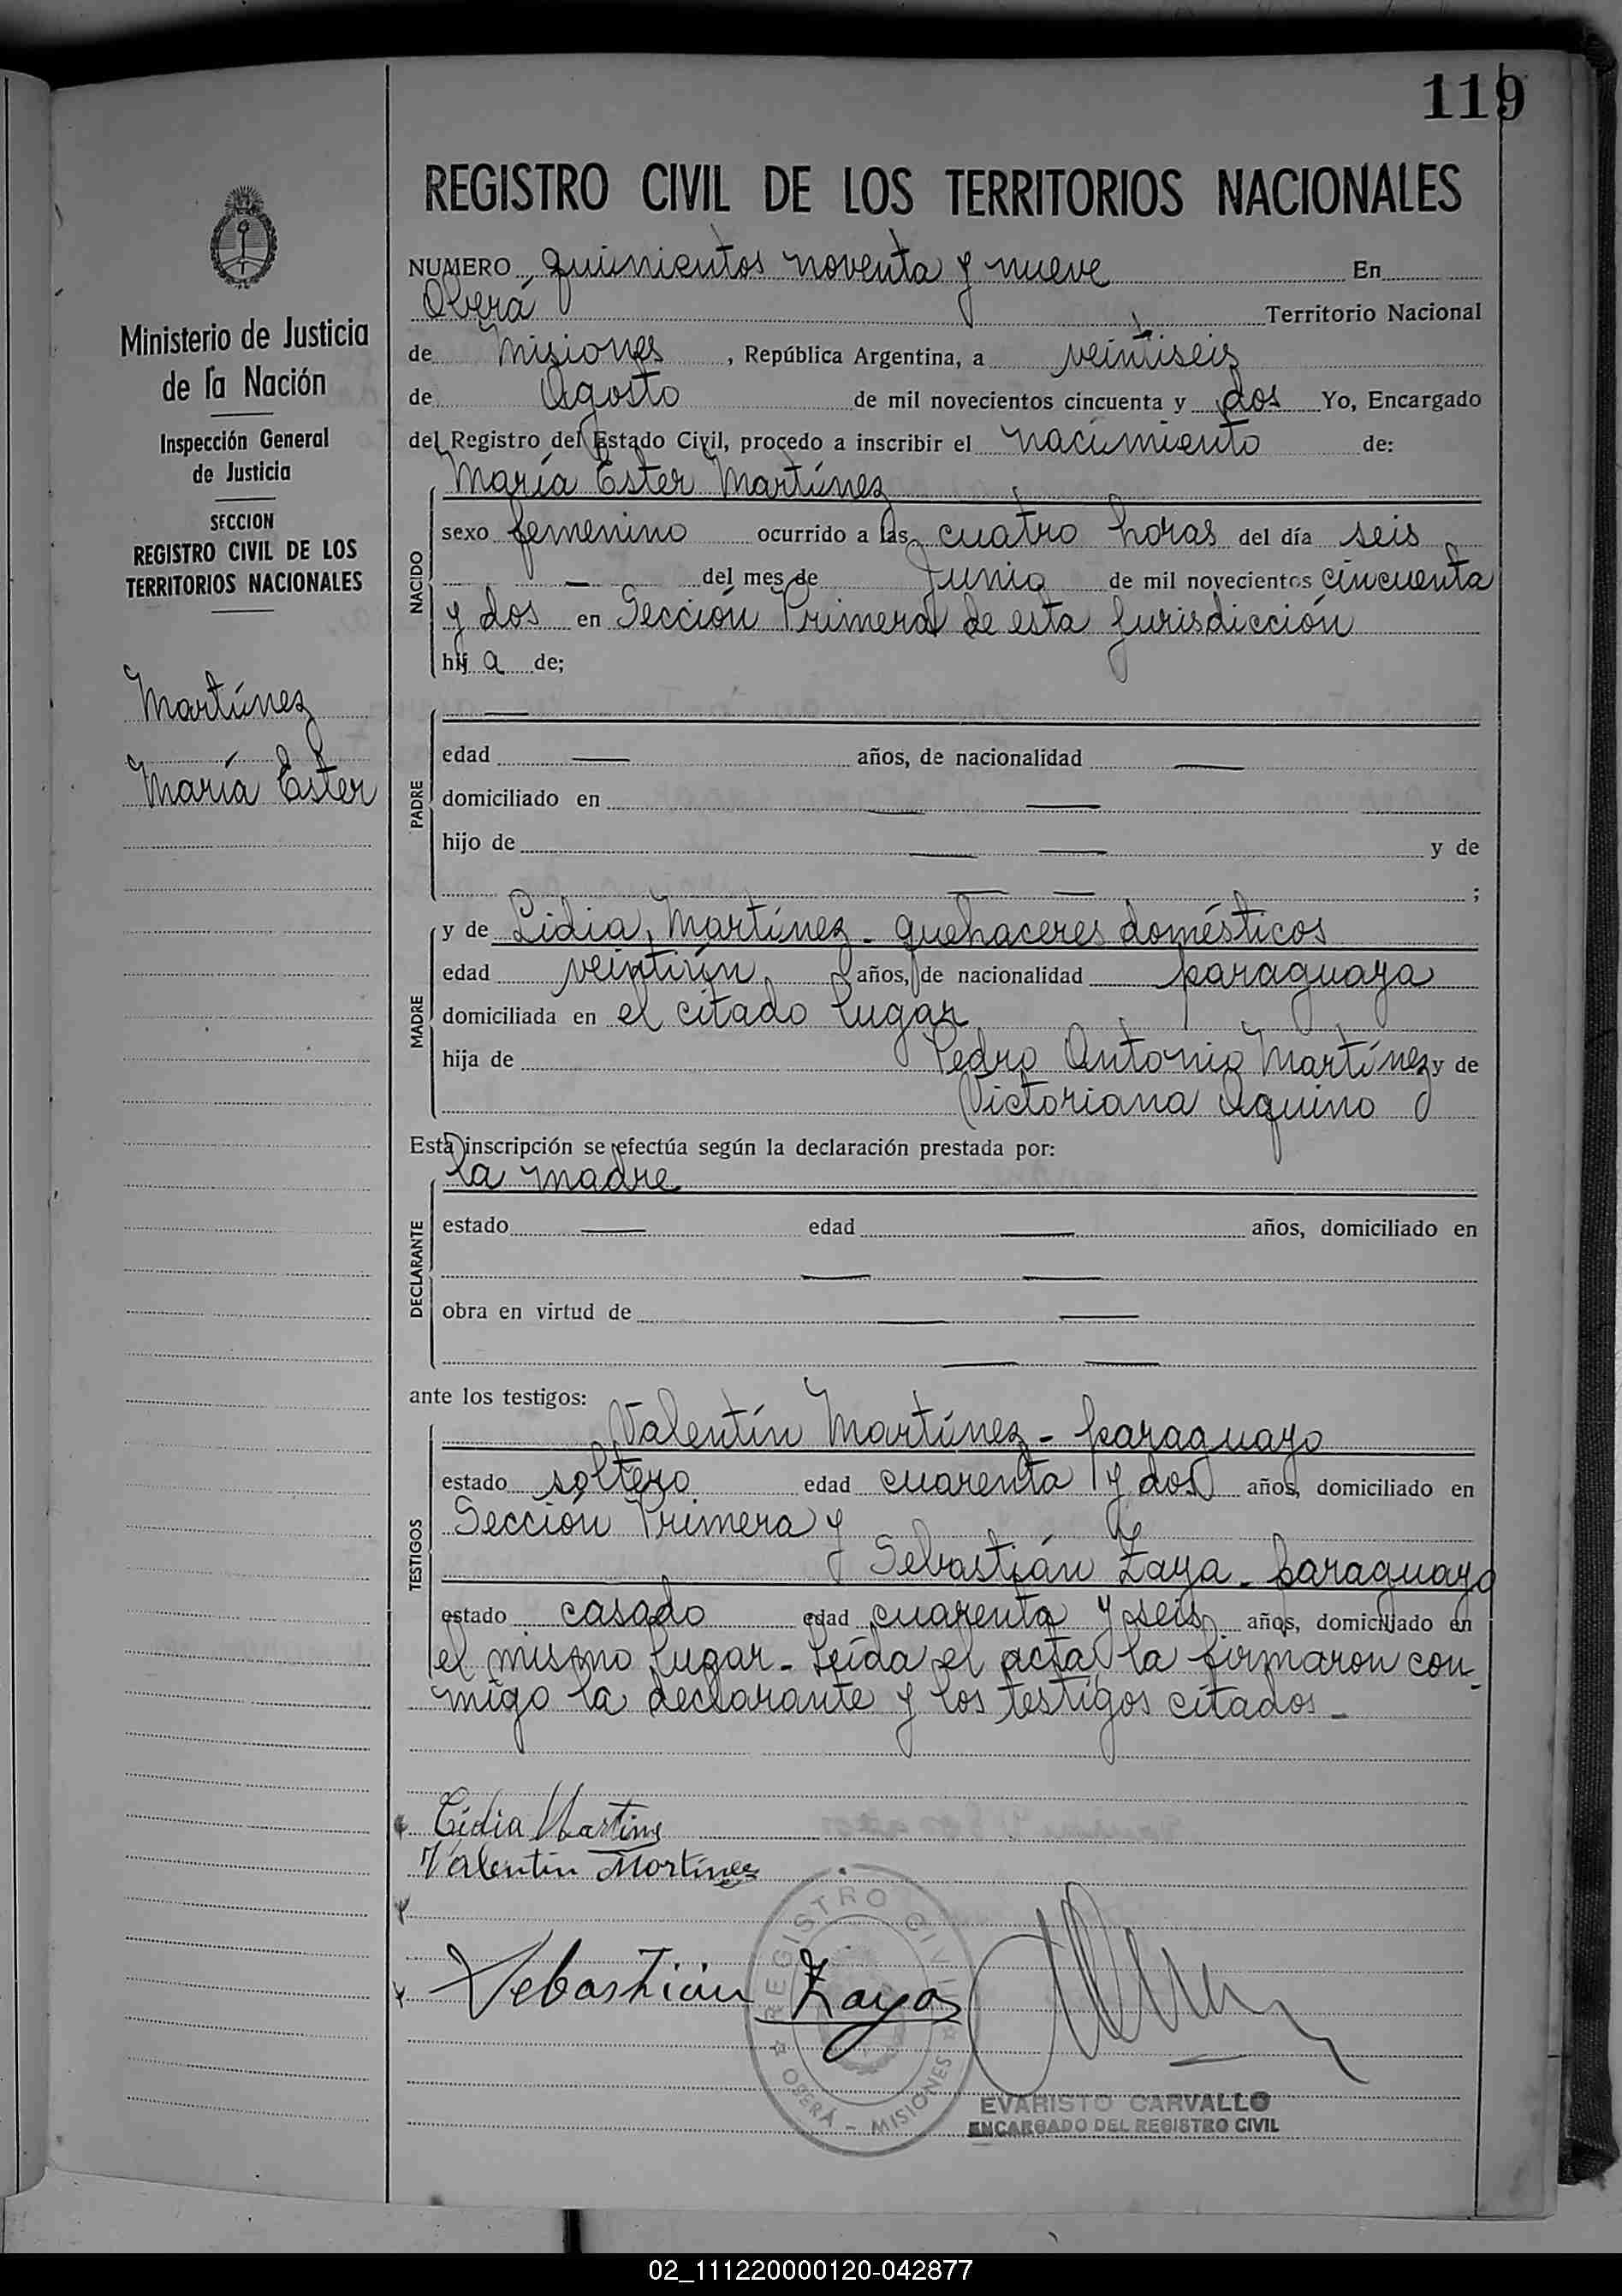 119
REGISTRO CIVIL DE LOS TERRITORIOS NACIONALES
NUMERO quinientos noventa y nueve En
Oberá Territorio Nacional
de Misiones, República Argentina, a veintiseis
de Agosto de mil novecientos cincuenta y dos Yo, Encargado
del Registro del Estado Civil, procedo a inscribir el nacimiento de:
María Ester Martínez
NACIDO
sexo femenino ocurrido a las cuatro horas del día seis
— del mes de Junio de mil novecientos cincuenta
y dos en Sección Primera de esta jurisdicción
hij a de;
Ministerio de Justicia
de la Nación
Inspección General
de Justicia
SECCION
REGISTRO CIVIL DE LOS
TERRITORIOS NACIONALES
Martínez
María Ester
PADRE
—
edad — años, de nacionalidad —
domiciliado en — —
hijo de — — y de
— — ;
MADRE
y de Lidia Martínez - quehaceres domésticos
edad veintiún años, de nacionalidad paraguaya
domiciliada en el citado lugar
hija de Pedro Antonio Martínez y de
Victoriana Aquino
Esta inscripción se efectúa según la declaración prestada por:
la madre
DECLARANTE
estado — edad — años, domiciliado en
— —
obra en virtud de — —
— —
ante los testigos:
TESTIGOS
Valentín Martínez - paraguayo
estado soltero edad cuarenta y dos años, domiciliado en
Sección Primera y
Sebastián Zaya - paraguayo
estado casado edad cuarenta y seis años, domiciliado en
el mismo lugar - Leída el acta la firmaron con-
migo la declarante y los testigos citados -
Lidia Martines
Valentin Martínez
Sebastián Zayas
REGISTRO CIVIL
OBERÁ - MISIONES
EVARISTO CARVALLO
ENCARGADO DEL REGISTRO CIVIL
02_111220000120-042877